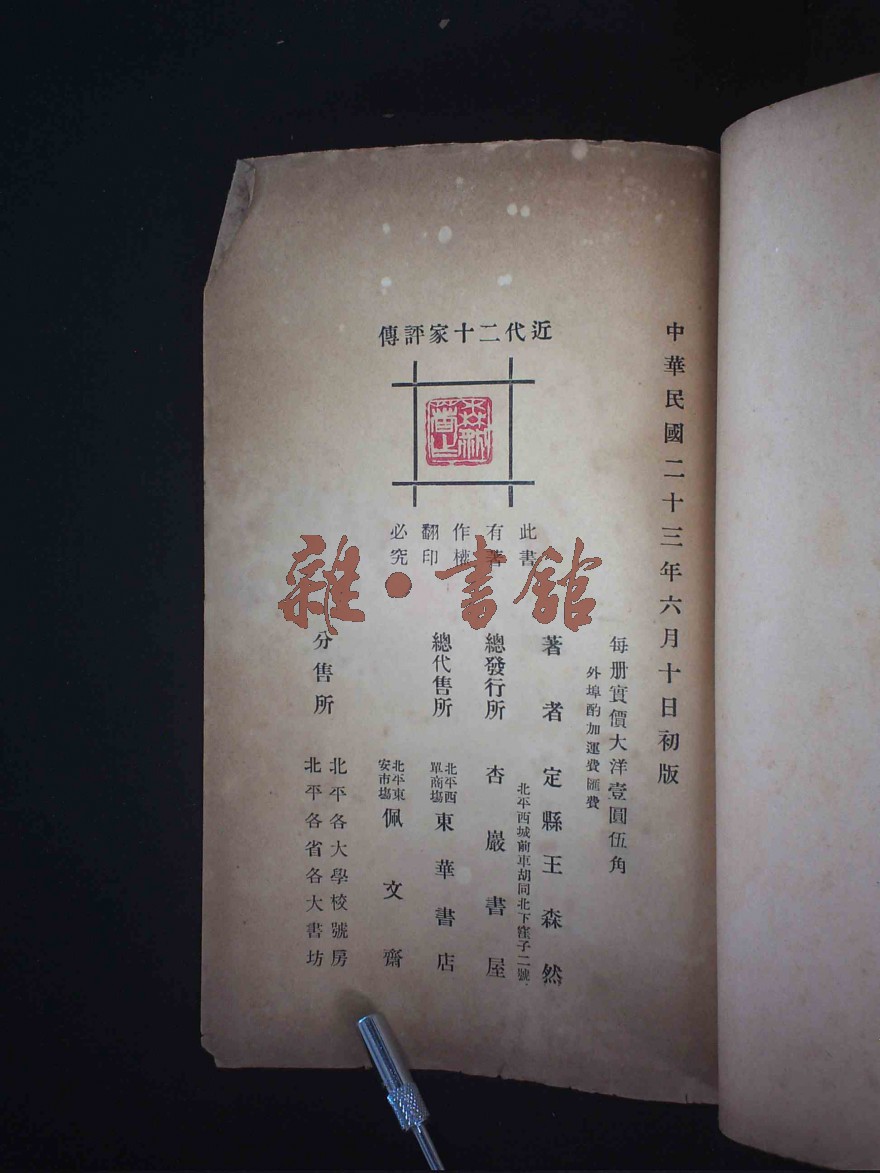 中華民國二十三年六月十日初版
每册實價大洋壹圓伍角
外埠酌加運費匯費
近代二十家評傳
此書
有著
作權
翻印
必究
著者 定縣王森然
北平西城前車胡同北下窪子二號
總發行所 杏巖書屋
總代售所 北平西單商塲 東華書店
北平東安市塲 佩文齋
分售所 北平各大學校號房
北平各省各大書坊
雜·書館